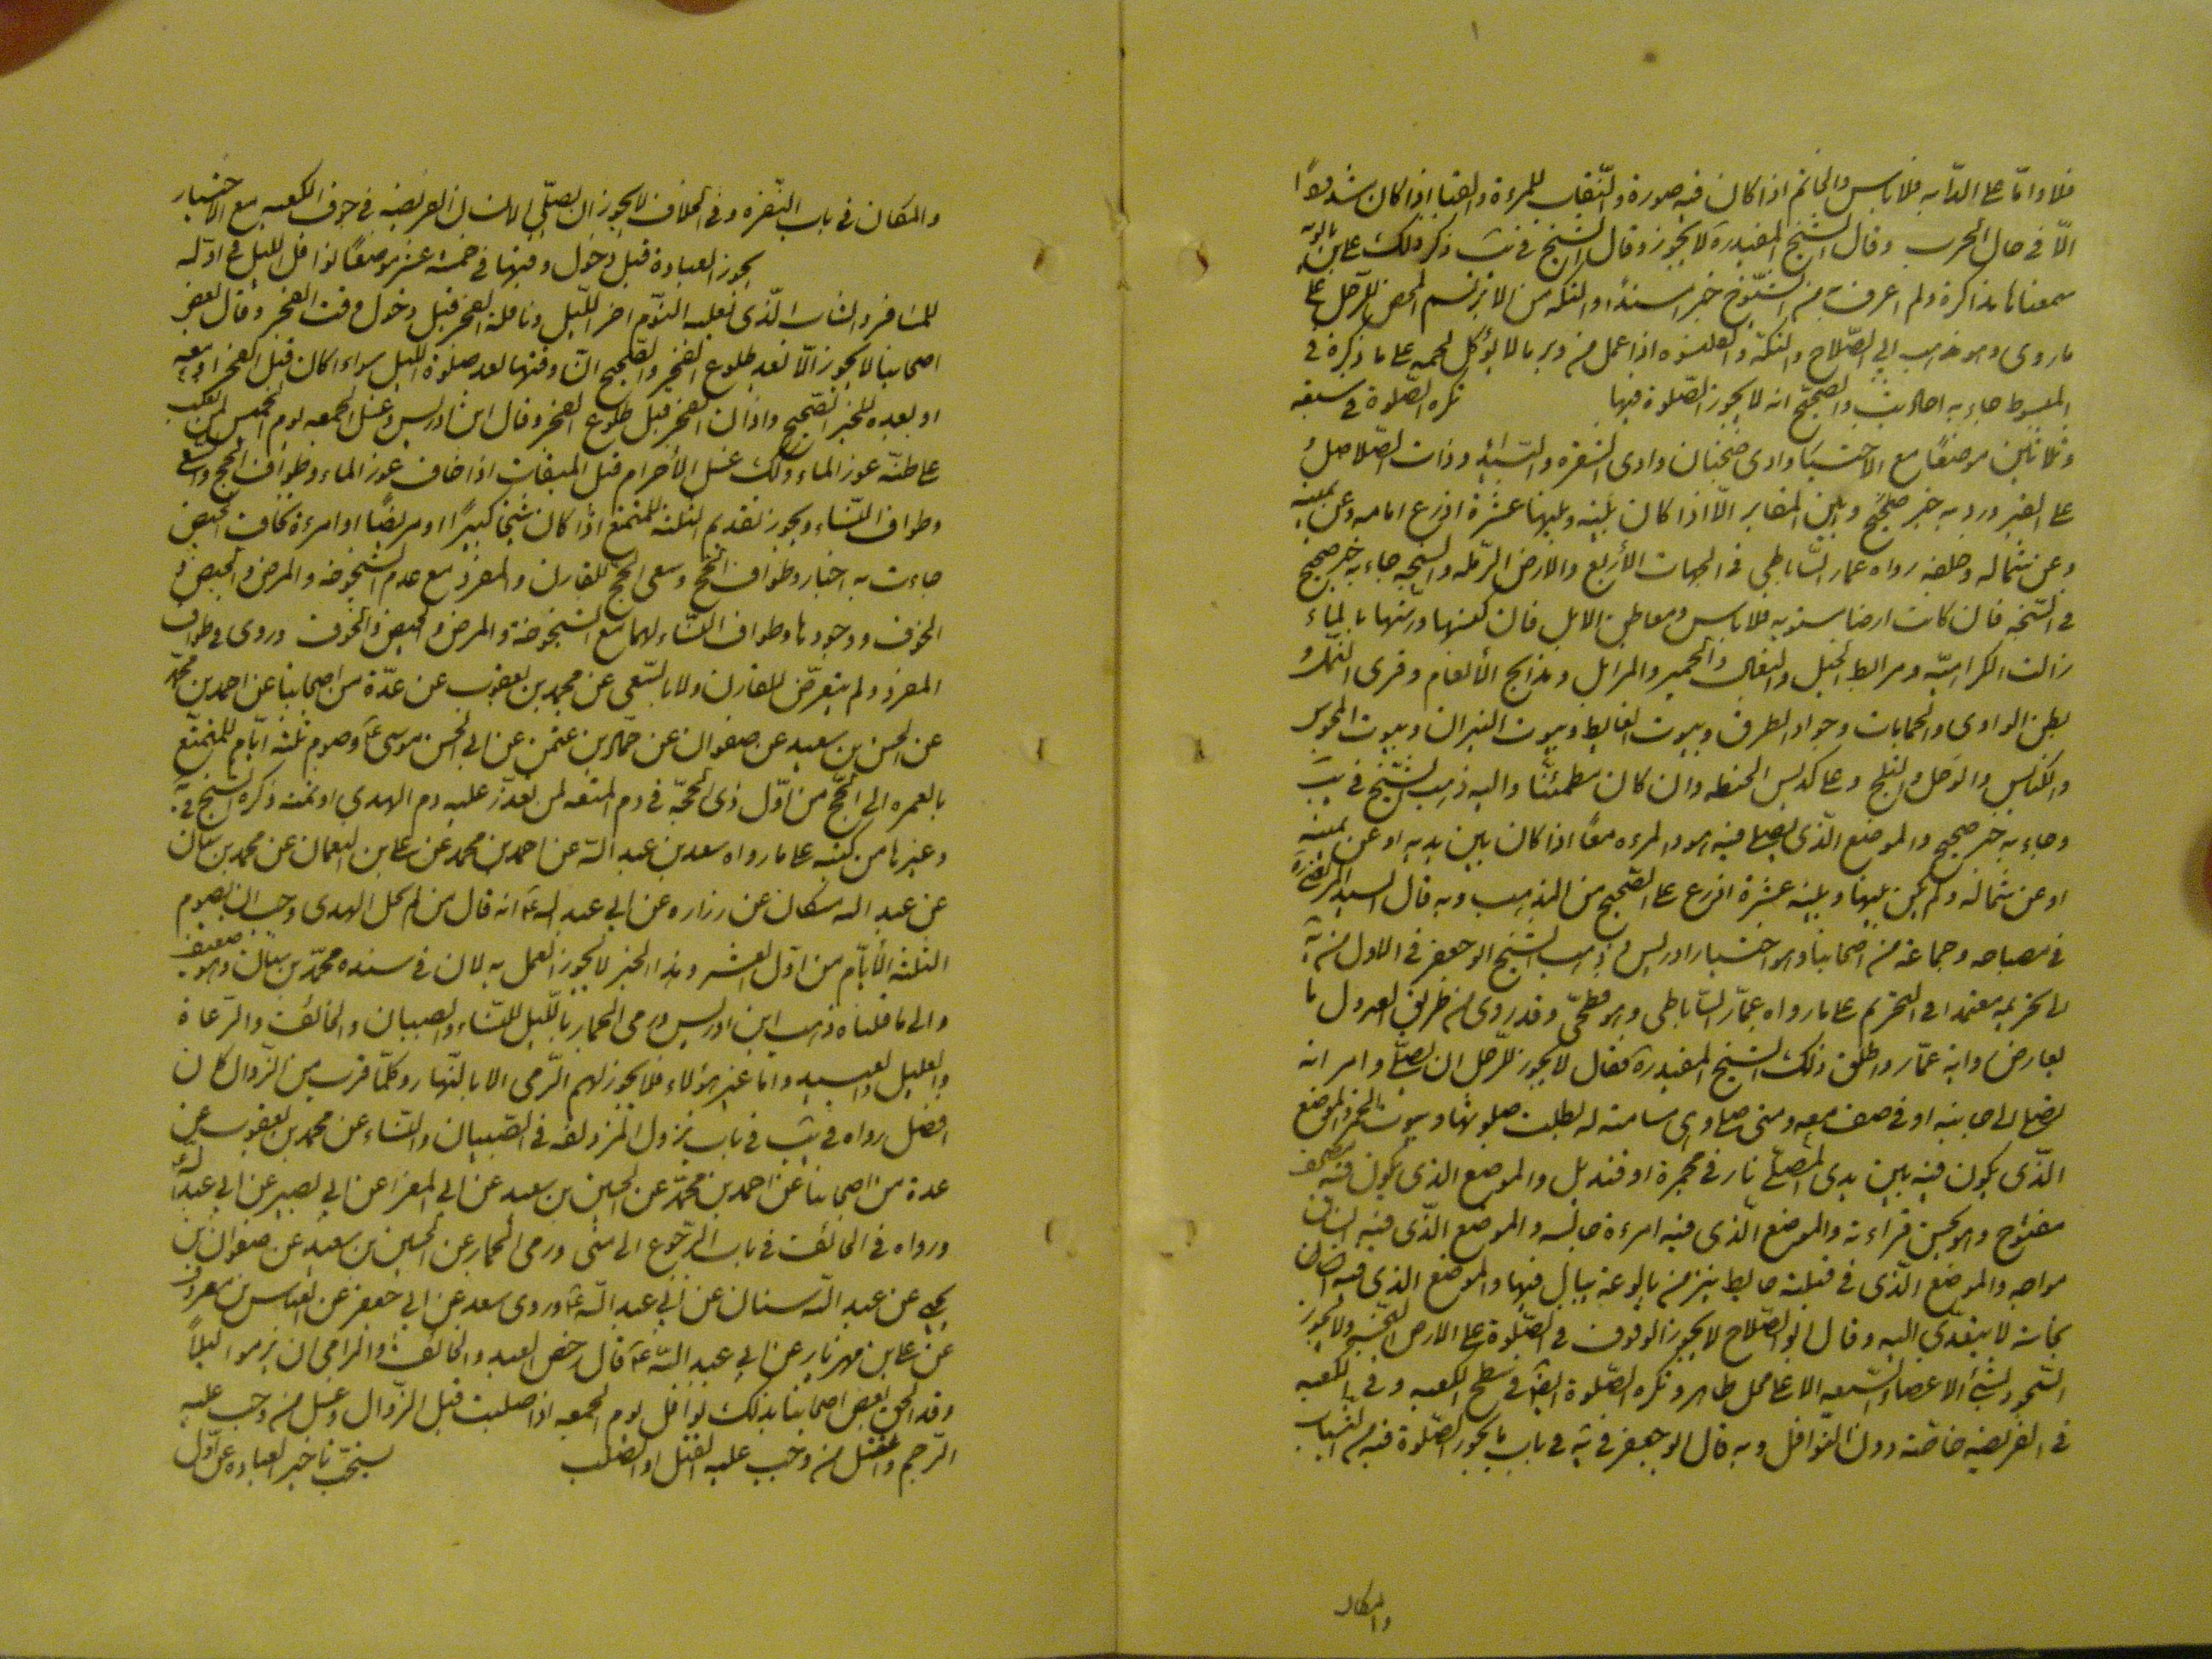 فلا واما على الدابه فلا باس والخاتم اذا كان فيه صورة والنقاب للمرءة والقبا اذا كان مشدودا
الا فى حال الحرب وقال الشيخ المفيد ره لا يجوز وقال الشيخ فى ذكر ذلك على بن بابويه
سمعناها مذاكرة ولم اعرف من الشيوخ خبرا مسندا والتكه من الابريسم المحض للرجل على
ما روى وهو مذهب ابى الصلاح والتكه والقلنسوه اذا عمل من وبر ما لا يؤكل لحمه على ما ذكره فى
المبسوط جاء به احاديث والصحيح انه لا يجوز الصلوة فيها تكره الصلوة فى سبعه
وثلاثين موضعا مع الاختيار وادى ضجنان وادى الشقره والبيداء وذات الصلاصل و
على القبر ورد به خبر صحيح وبين المقابر الا اذا كان بينه وبينها عشرة اذرع امامه وعن يمينه
وعن شماله وخلفه رواه عمار الساباطى فى الجهات الأربع والارض الرمله والسبخه جاء به خبر صحيح
فى السبخه فان كانت ارضا مستويه فلا باس ومعاطن الابل فان كنسها ورشها بالماء
زالت الكراهيه ومرابط الخيل والبغال والحمير والمزابل ومذابح الأنعام وقرى النمل و
بطن الوادى والحمامات وجواد الطرق وبيوت الغايط وبيوت النيران وبيوت المجوس
والكنايس والوحل والثلج وعلى كدس الحنطه وان كان مطمئنا واليه ذهب الشيخ فى
وجاء به خبر صحيح والموضع الذى يصلى فيه هو والمرءه معا اذا كان بين يديه او عن يمينه
او عن شماله ولم يكن بينها وبينه عشرة اذرع على الصحيح من المذهب وبه قال السيد المرتضى
فى مصباحه وجماعة من اصحابنا وهو اختيار ادريس وذهب الشيخ ابو جعفر فى الاول من
الى تحريمه معتمدا فى التحريم على ما رواه عمار الساباطى وهو فطحى وقد روى من طريق العدول ما
يعارض رواية عمار واطلق ذلك الشيخ المفيد ره فقال لا يجوز للرجل ان يصلى وامراته
تصلى الى جانبه او فى صف معه ومتى صلى وهى مسامته له بطلت صلوتهما وبيوت الخمر والموضع
الذى يكون فيه بين يدى المصلى نار فى مجمرة او قنديل والموضع الذى يكون فيه مصحف
مفتوح وهو يحسن قراءته والموضع الذى فيه امرءة جالسه والموضع الذى فيه انسان
مواجه والموضع الذى فى قبلته حايط ينز من بالوعة يبال فيها والموضع الذى فيه
نجاسة لا يتعدى اليه وقال ابو الصلاح لا يجوز الوقوف فى الصلوة على الارض النجسه ولا يجوز
السجود بشئ الاعضاء السبعه الا على محل طاهر وتكره الصلوة ايضا فى سطح الكعبه وفى الكعبه
فى الفريضه خاصة دون النوافل وبه قال ابو جعفر فى يه فى باب ما يجوز الصلوة فيه من الثياب
والمكان
والمكان فى باب النفره وفى الخلاف لا يجوز ان يصلى الانسان الفريضه فى جوف الكعبه مع الاختيار
يجوز العبادة قبل دخول وقتها فى خمسة عشر موضعا نوافل الليل فى اوله
للمسافر والشاب الذى يغلبه النوم اخر الليل ونافلة الفجر قبل دخول وقت الفجر وقال بعض
اصحابنا لا يجوز الا بعد طلوع الفجر والصحيح ان وقتها بعد صلوة الليل سواء كان قبل الفجر او معه
او بعده للخبر الصحيح واذان الفجر قبل طلوع الفجر وقال ابن ادريس وغسل الجمعه يوم الخميس لمن يغلب
على ظنه عوز الماء وكذلك غسل الأحرام قبل الميقات اذا خاف عوز الماء وطواف الحج والسعى
وطواف النساء ويجوز تقديم الثلثه للمتمتع اذا كان شيخا كبيرا او مريضا او امرءة تخاف الحيض
جاءت به اخبار وطواف الحج وسعى الحج للقارن والمفرد مع عدم الشيخوخه والمرض والحيض و
الخوف ووجودها وطواف النساء لهما مع الشيخوخة والمرض والحيض والخوف وروى فى طواف
المفرد ولم يتعرض للقارن ولا بالسعى عن محمد بن يعقوب عن عدة من اصحابنا عن احمد بن محمد
عن الحسين بن سعيد عن صفوان عن حماد بن عثمن عن ابى الحسن موسى ع وصوم ثلثه ايام للمتمتع
بالعمره الى الحج من اول ذى الحجه فى دم المتعه لمن تعذر عليه دم الهدى او ثمنه ذكره الشيخ فى
وغيرها من كتبه على ما رواه سعد بن عبد الله عن احمد بن محمد عن على بن النعمان عن محمد بن سنان
عن عبد الله مسكان عن زراره عن ابى عبد الله ع انه قال من لم يحل الهدى وجب ان يصوم
الثلثه الأيام من اول العشر وهذا الخبر لا يجوز العمل به لان فى سنده محمد بن سنان وهو ضعيف
والى ما قلناه ذهب ابن ادريس ورمى الجمار بالليل للنساء والصبيان والخائف والرعاة
والعليل والعبيد واما غير هؤلاء فلا يجوز لهم الرمى الا بالنهار وكلما قرب من الزوال كان
افضل رواه فى فى باب نزول المزدلفه فى الصبيان والنساء عن محمد بن يعقوب عن
عدة من اصحابنا عن احمد بن محمد عن الحسين بن سعيد عن ابى المغرا عن ابى بصير عن ابى عبد الله
ورواه فى الخائف فى باب الرجوع الى منى ورمى الجمار عن الحسين بن سعيد عن صفوان بن
يحيى عن عبد الله سنان عن ابى عبد الله ع وروى سعد عن ابى جعفر عن العباس بن معروف
عن على بن مهزيار عن ابى عبد الله ع قال رخص العبد والخائف والراعى ان يرموا ليلا
وقد الحق بعض اصحابنا بذلك نوافل يوم الجمعه اذا صليت قبل الزوال وغسل من وجب عليه
الرجم والقتل من وجب عليه القتل او الصلب يستحب تاخير العباده عن اول